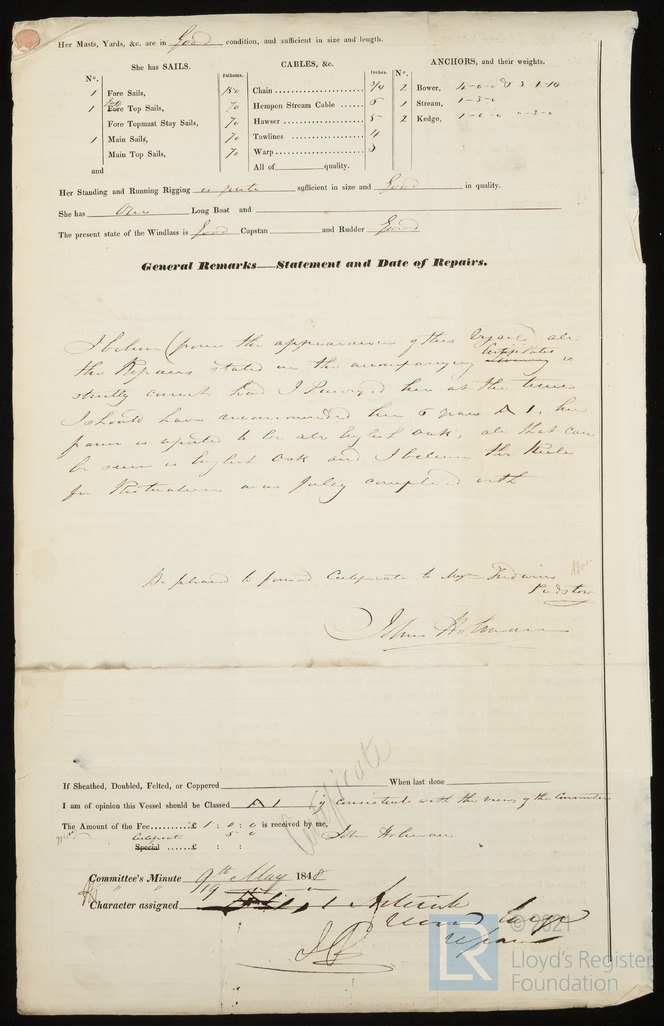 Her Masts, Yards, &c. are in Good condition, and sufficient in size and length.
She has SAILS.
CABLES, &c.
ANCHORS, and their weights.
N°.
Fathoms.
Inches.
N°.
1 Fore Sails,
1 Fore Top Sails,
Fore Topmast Stay Sails,
1 Main Sails,
Main Top Sails,
and
180 Chain 3/4
70 Hempen Stream Cable
70 Hawser 5
70 Towlines 4
70 Warp 3
All of quality.
2 Bower,
1 Stream, 1-3-0
2 Kedge, 1-0-0 0-3-0
Her Standing and Running Rigging is quite sufficient in size and Good in quality.
She has One Long Boat and
The present state of the Windlass is Good Capstan and Rudder Good
General Remarks—Statement and Date of Repairs.
I believe (from the appearance of this Vessel) all
the Repairs stated in the accompanying Certificates is
strictly correct had I Surveyed her at the time
I should have recommended her 6 years A 1, her
frame is to be all English Oak, all that can
be seen is English Oak and I believe the Rule
for Restoration was fully complied with
Be pleased to forward Certificate to
Padstow
John Holman
Certificate
If Sheathed, Doubled, Felted, or Coppered When last done
I am of opinion this Vessel should be Classed A 1 if consistent with the views of the Committee
The Amount of the Fee......£ 1 : 0 : 0 is received by me, John Holman
Certificate 5 0
Special ......£ : :
Committee's Minute 9th May 1848
19
Character assigned
© 2021
LR
Lloyd's Register
Foundation